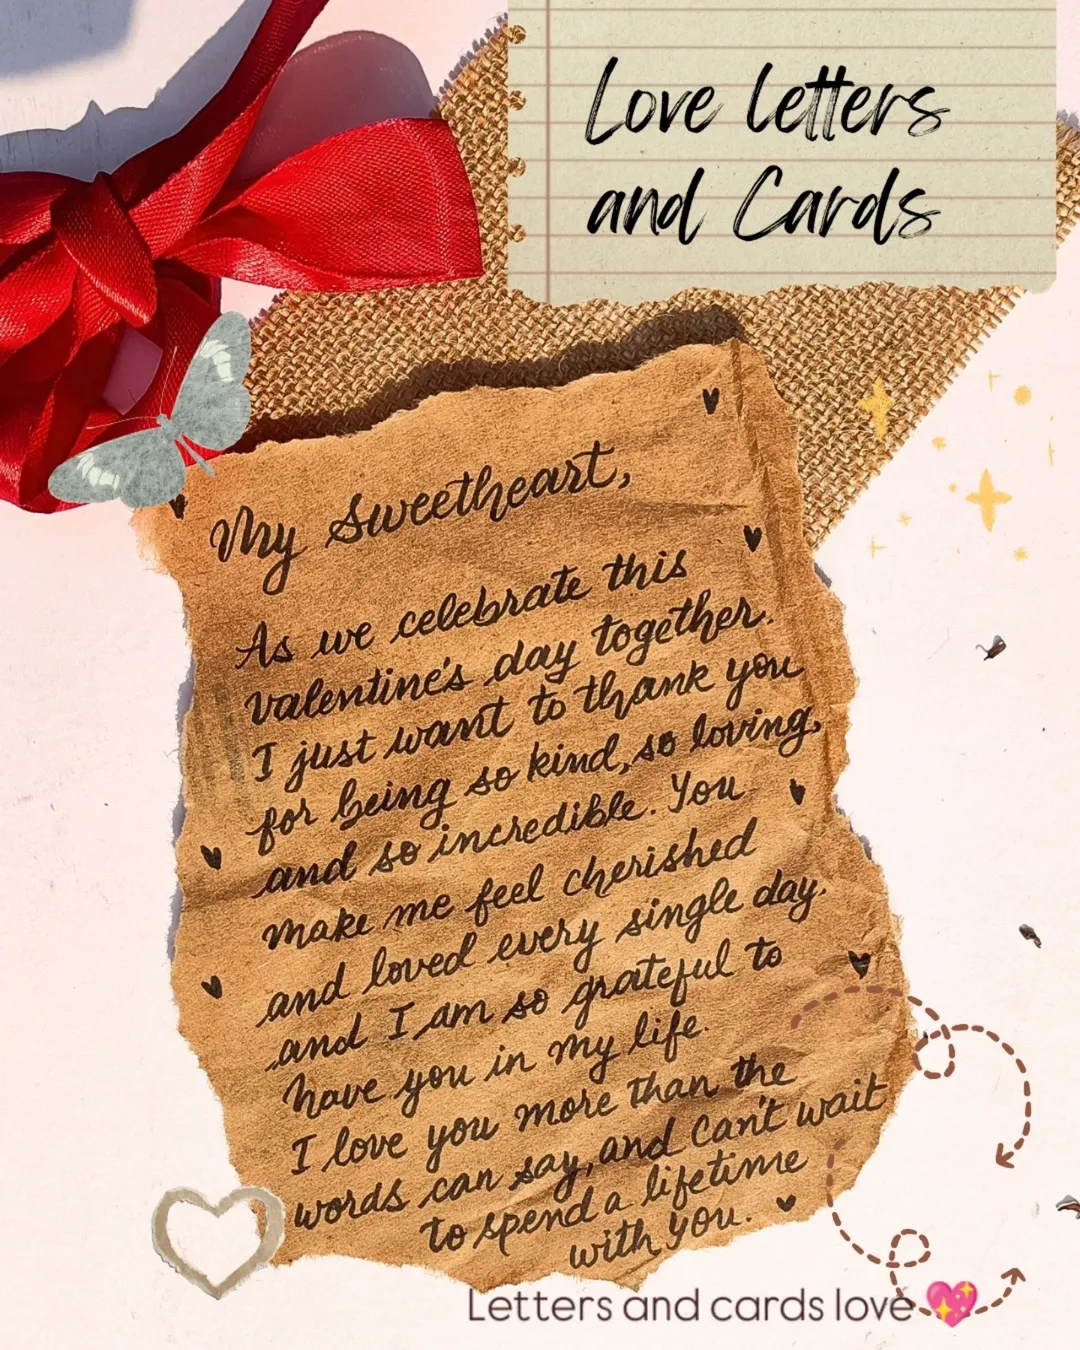 Love letters
and Cards
My Sweetheart,
As we celebrate this
valentine's day together.
I just want to thank you
for being so kind, so loving,
and so incredible. You
make me feel cherished
and loved every single day,
and I am so grateful to
have you in my life.
I love you more than the
words can say, and can't wait
to spend a lifetime
with you.
Letters and cards love 💖